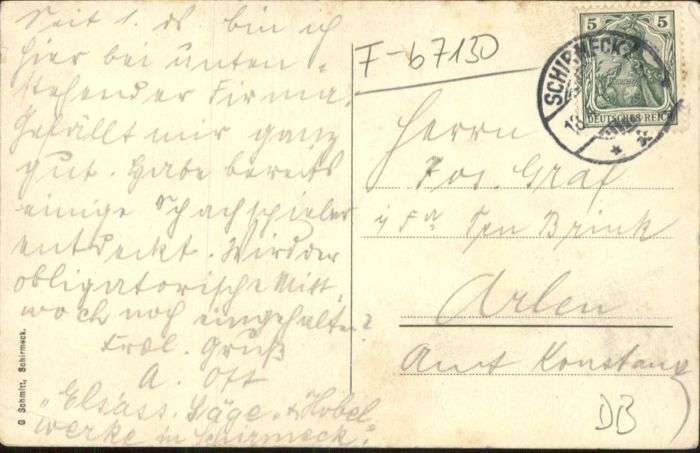 Seit 1. ds bin ich
hier bei unten-
stehender Firma.
Gefällt mir ganz
gut. Habe bereits
einige Schachspieler
entdeckt. Wird der
obligatorische Mitt-
woch noch eingehalten?
Frdl. Gruß
A. Ott
"Elsäss. Säge- & Hobel-
werke in Schirmeck."
G Schmitt, Schirmeck.
F-67130
5 5
DEUTSCHES REICH
SCHIRMECK
Herrn
Jos. Graf
i/ Fa Ten Brink
Arlen
Amt Konstanz
DB